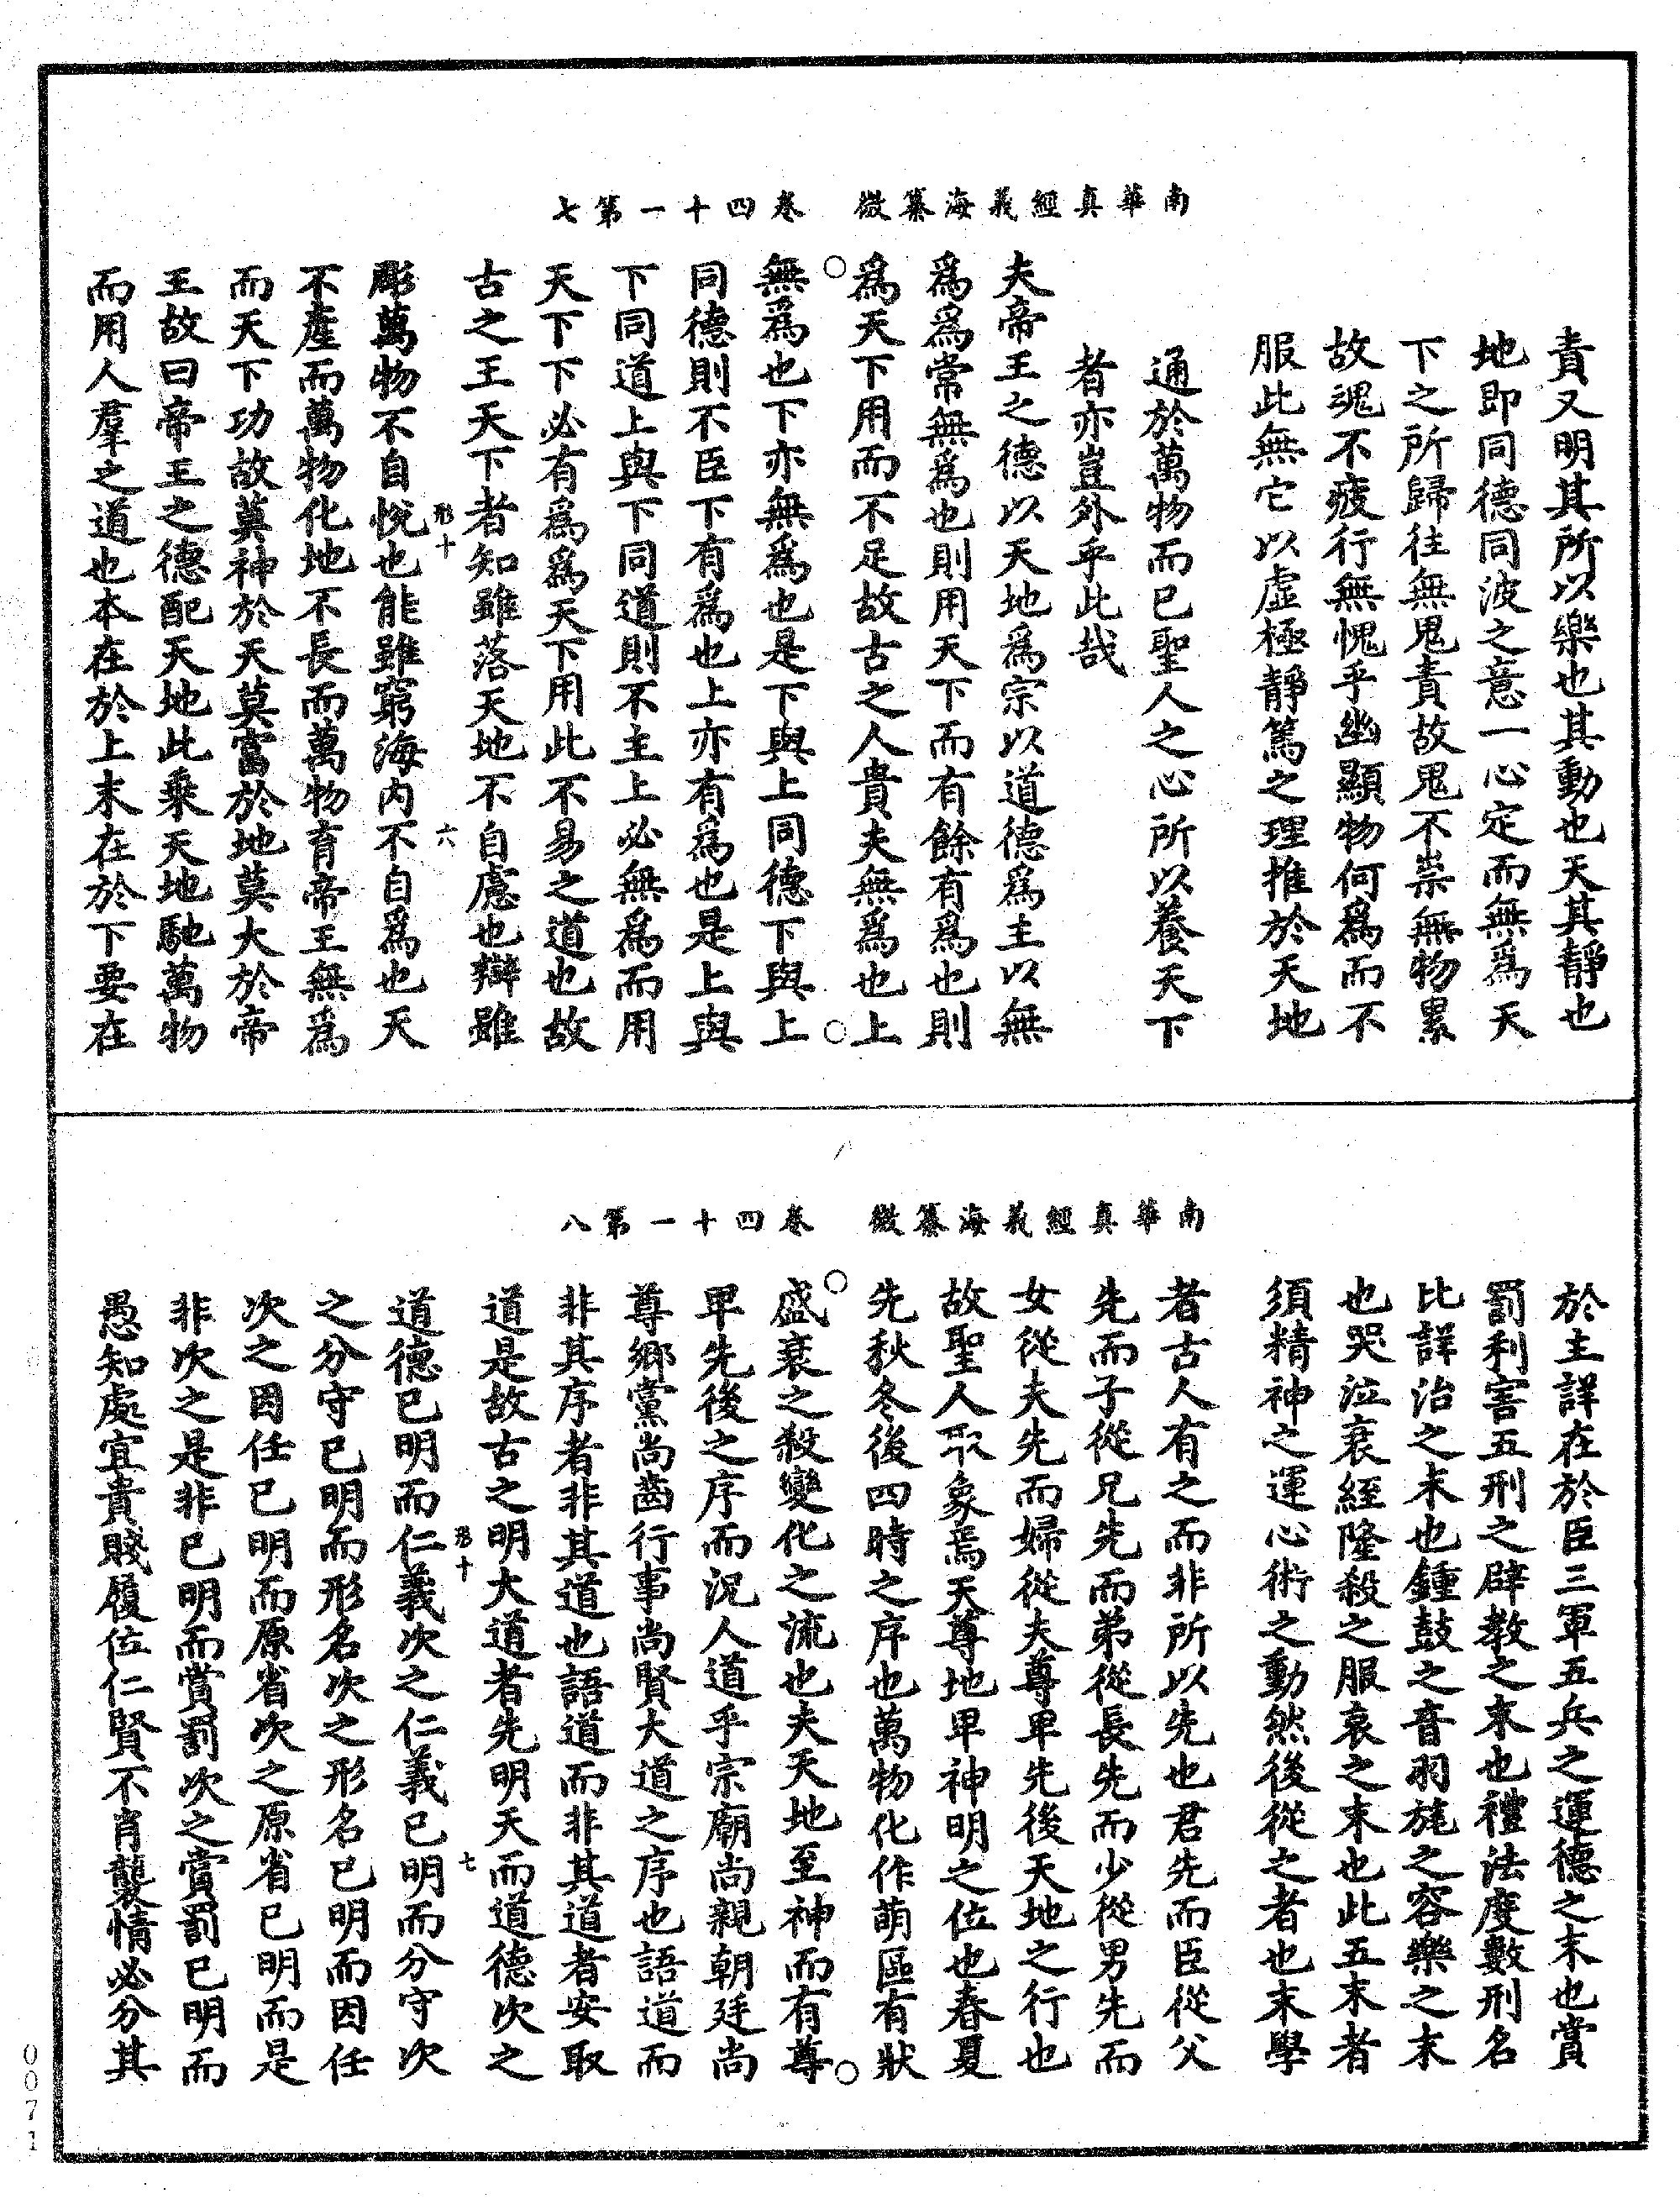 南華真經義海纂微　卷四十一第七
責又明其所以樂也其動也天其靜也
地即同德同波之意一心定而無爲天
下之所歸往無鬼責故鬼不祟無物累
故魂不疲行無愧乎幽顯物何爲而不
服此無它以虛極靜篤之理推於天地
通於萬物而已聖人之心所以養天下
者亦豈外乎此哉
夫帝王之德以天地爲宗以道德爲主以無
爲爲常無爲也則用天下而有餘有爲也則
爲天下用而不足故古之人貴夫無爲也上
無爲也下亦無爲也是下與上同德下與上
同德則不臣下有爲也上亦有爲也是上與
下同道上與下同道則不主上必無爲而用
天下下必有爲爲天下用此不易之道也故
古之王天下者知雖落天地不自慮也辯雖
形十　六
彫萬物不自悅也能雖窮海内不自爲也天
不產而萬物化地不長而萬物育帝王無爲
而天下功故莫神於天莫富於地莫大於帝
王故曰帝王之德配天地此乘天地馳萬物
而用人羣之道也本在於上末在於下要在
南華真經義海纂微　卷四十一第八
於主詳在於臣三軍五兵之運德之末也賞
罰利害五刑之辟教之末也禮法度數刑名
比詳治之末也鍾鼓之音羽旄之容樂之末
也哭泣衰絰隆殺之服哀之末也此五末者
須精神之運心術之動然後從之者也末學
者古人有之而非所以先也君先而臣從父
先而子從兄先而弟從長先而少從男先而
女從夫先而婦從夫尊卑先後天地之行也
故聖人取象焉天尊地卑神明之位也春夏
先秋冬後四時之序也萬物化作萌區有狀
盛衰之殺變化之流也夫天地至神而有尊
卑先後之序而況人道乎宗廟尚親朝廷尚
尊鄉黨尚齒行事尚賢大道之序也語道而
非其序者非其道也語道而非其道者安取
道是故古之明大道者先明天而道德次之
形十　七
道德已明而仁義次之仁義已明而分守次
之分守已明而形名次之形名已明而因任
次之因任已明而原省次之原省已明而是
非次之是非已明而賞罰次之賞罰已明而
愚知處宜貴賤履位仁賢不肖襲情必分其
0071